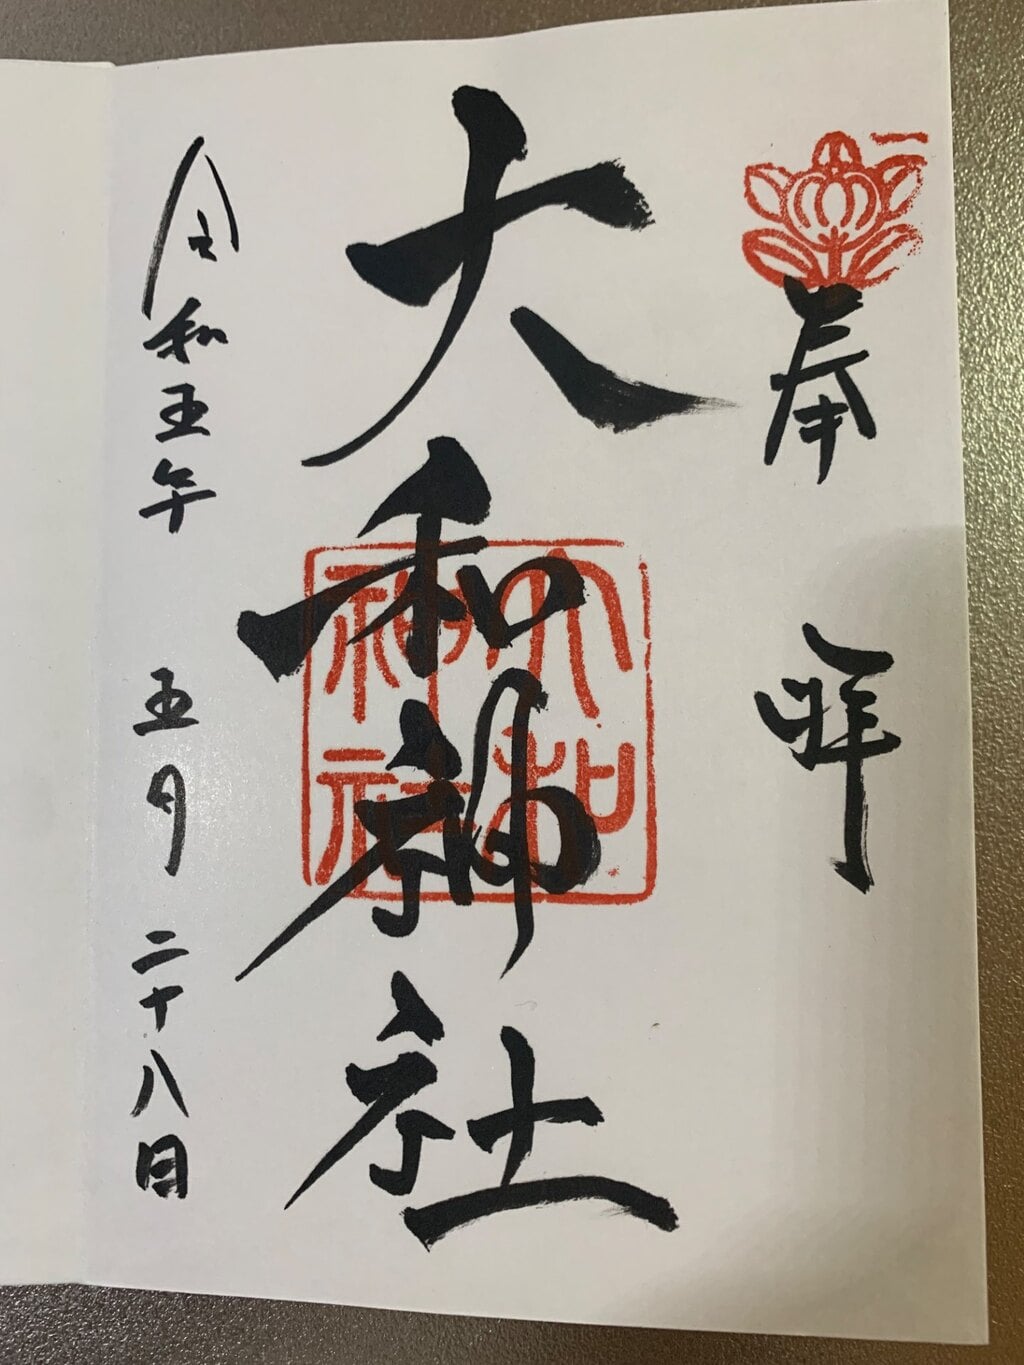 奉拝
大和神社
大和
神社
令和五年五月二十八日